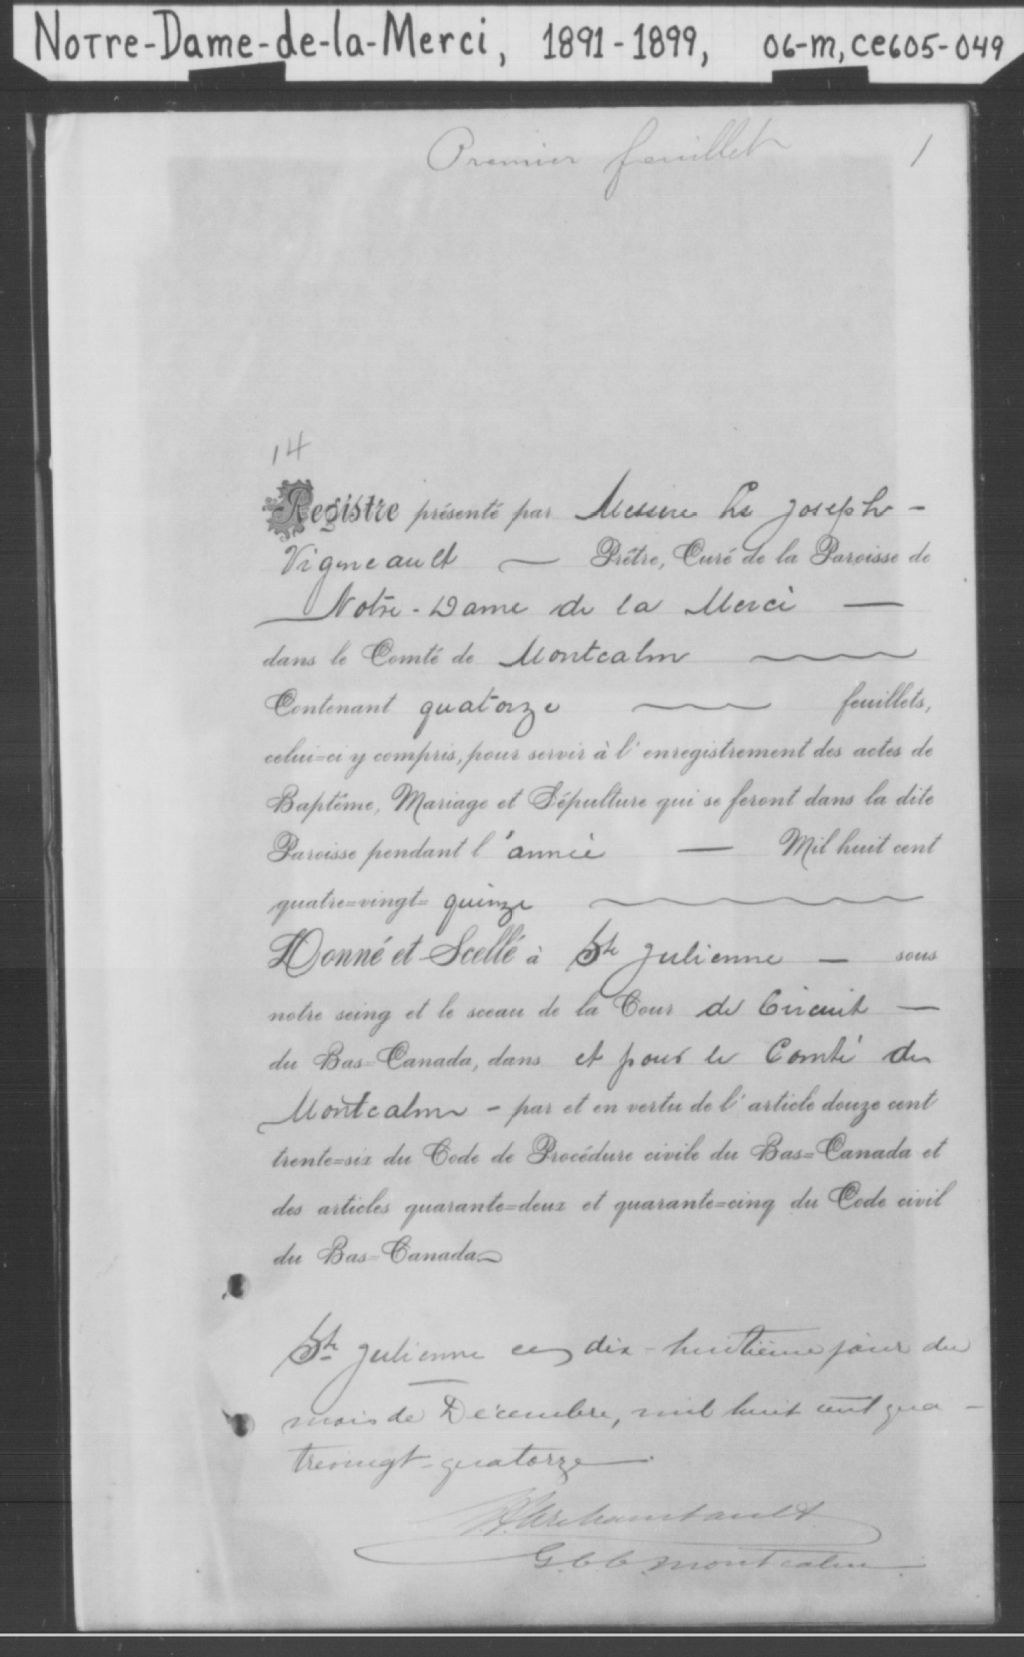 Notre-Dame-de-la-Merci, 1891-1899, 06-m, CE605-049
Premier feuillet 1
14
Registre présenté par Messire Ls Joseph -
Vigneault — Prêtre, Curé de la Paroisse de
Notre-Dame de la Merci —
dans le Comté de Montcalm
Contenant quatorze feuillets,
celui=ci y compris, pour servir à l'enregistrement des actes de
Baptême, Mariage et Sépulture qui se feront dans la dite
Paroisse pendant l'année — Mil huit cent
quatre=vingt= quinze
Donné et Scellé à Ste Julienne — sous
notre seing et le sceau de la Cour de Circuit —
du Bas=Canada, dans et pour le Comté de
Montcalm - par et en vertu de l'article douze cent
trente=six du Code de Procédure civile du Bas=Canada et
des articles quarante=deux et quarante=cinq du Code civil
du Bas=Canada
Ste Julienne ce dix-huitième jour du
mois de Décembre, mil huit cent qua-
trevingt-quatorze
Archambault
G.C.C. Montcalm